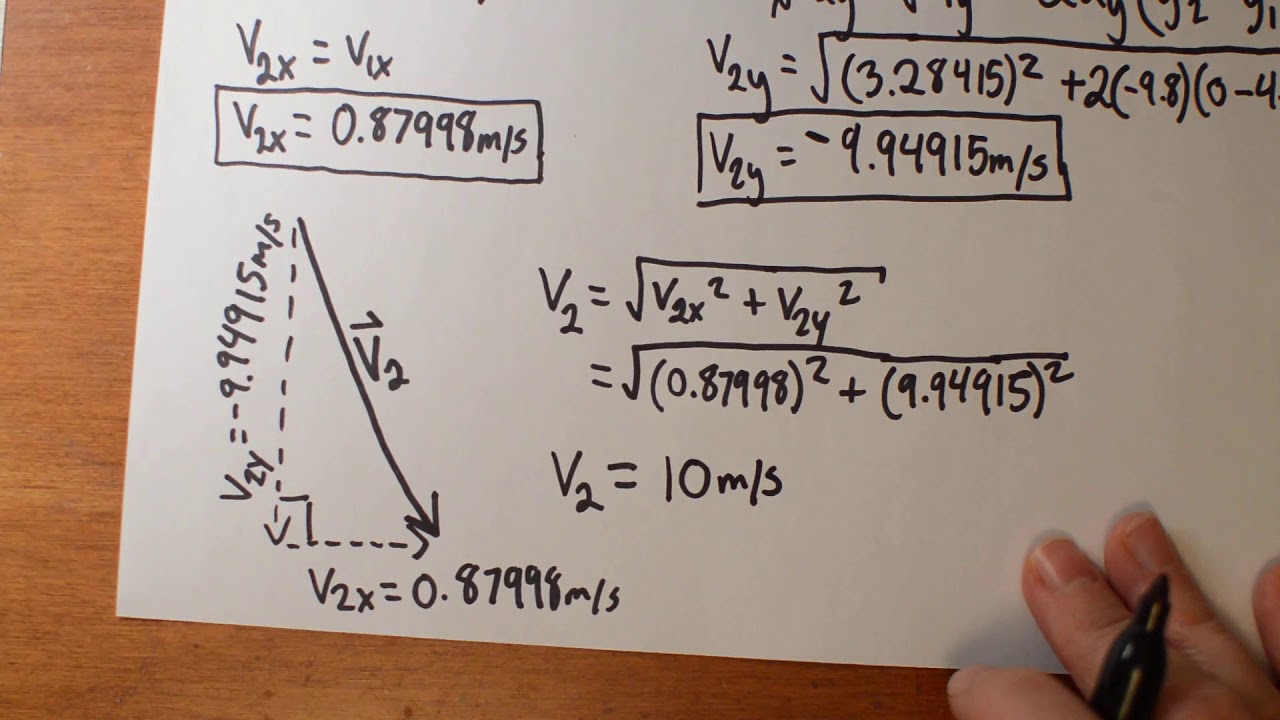 V2x = V1x
V2x = 0.87998m/s
V2y = √(3.28415)² + 2(-9.8)(0 - 4.
V2y = -9.94915m/s
V2y = -9.94915m/s
V2
V2x = 0.87998m/s
V2 = √V2x² + V2y²
= √(0.87998)² + (9.94915)²
V2 = 10m/s